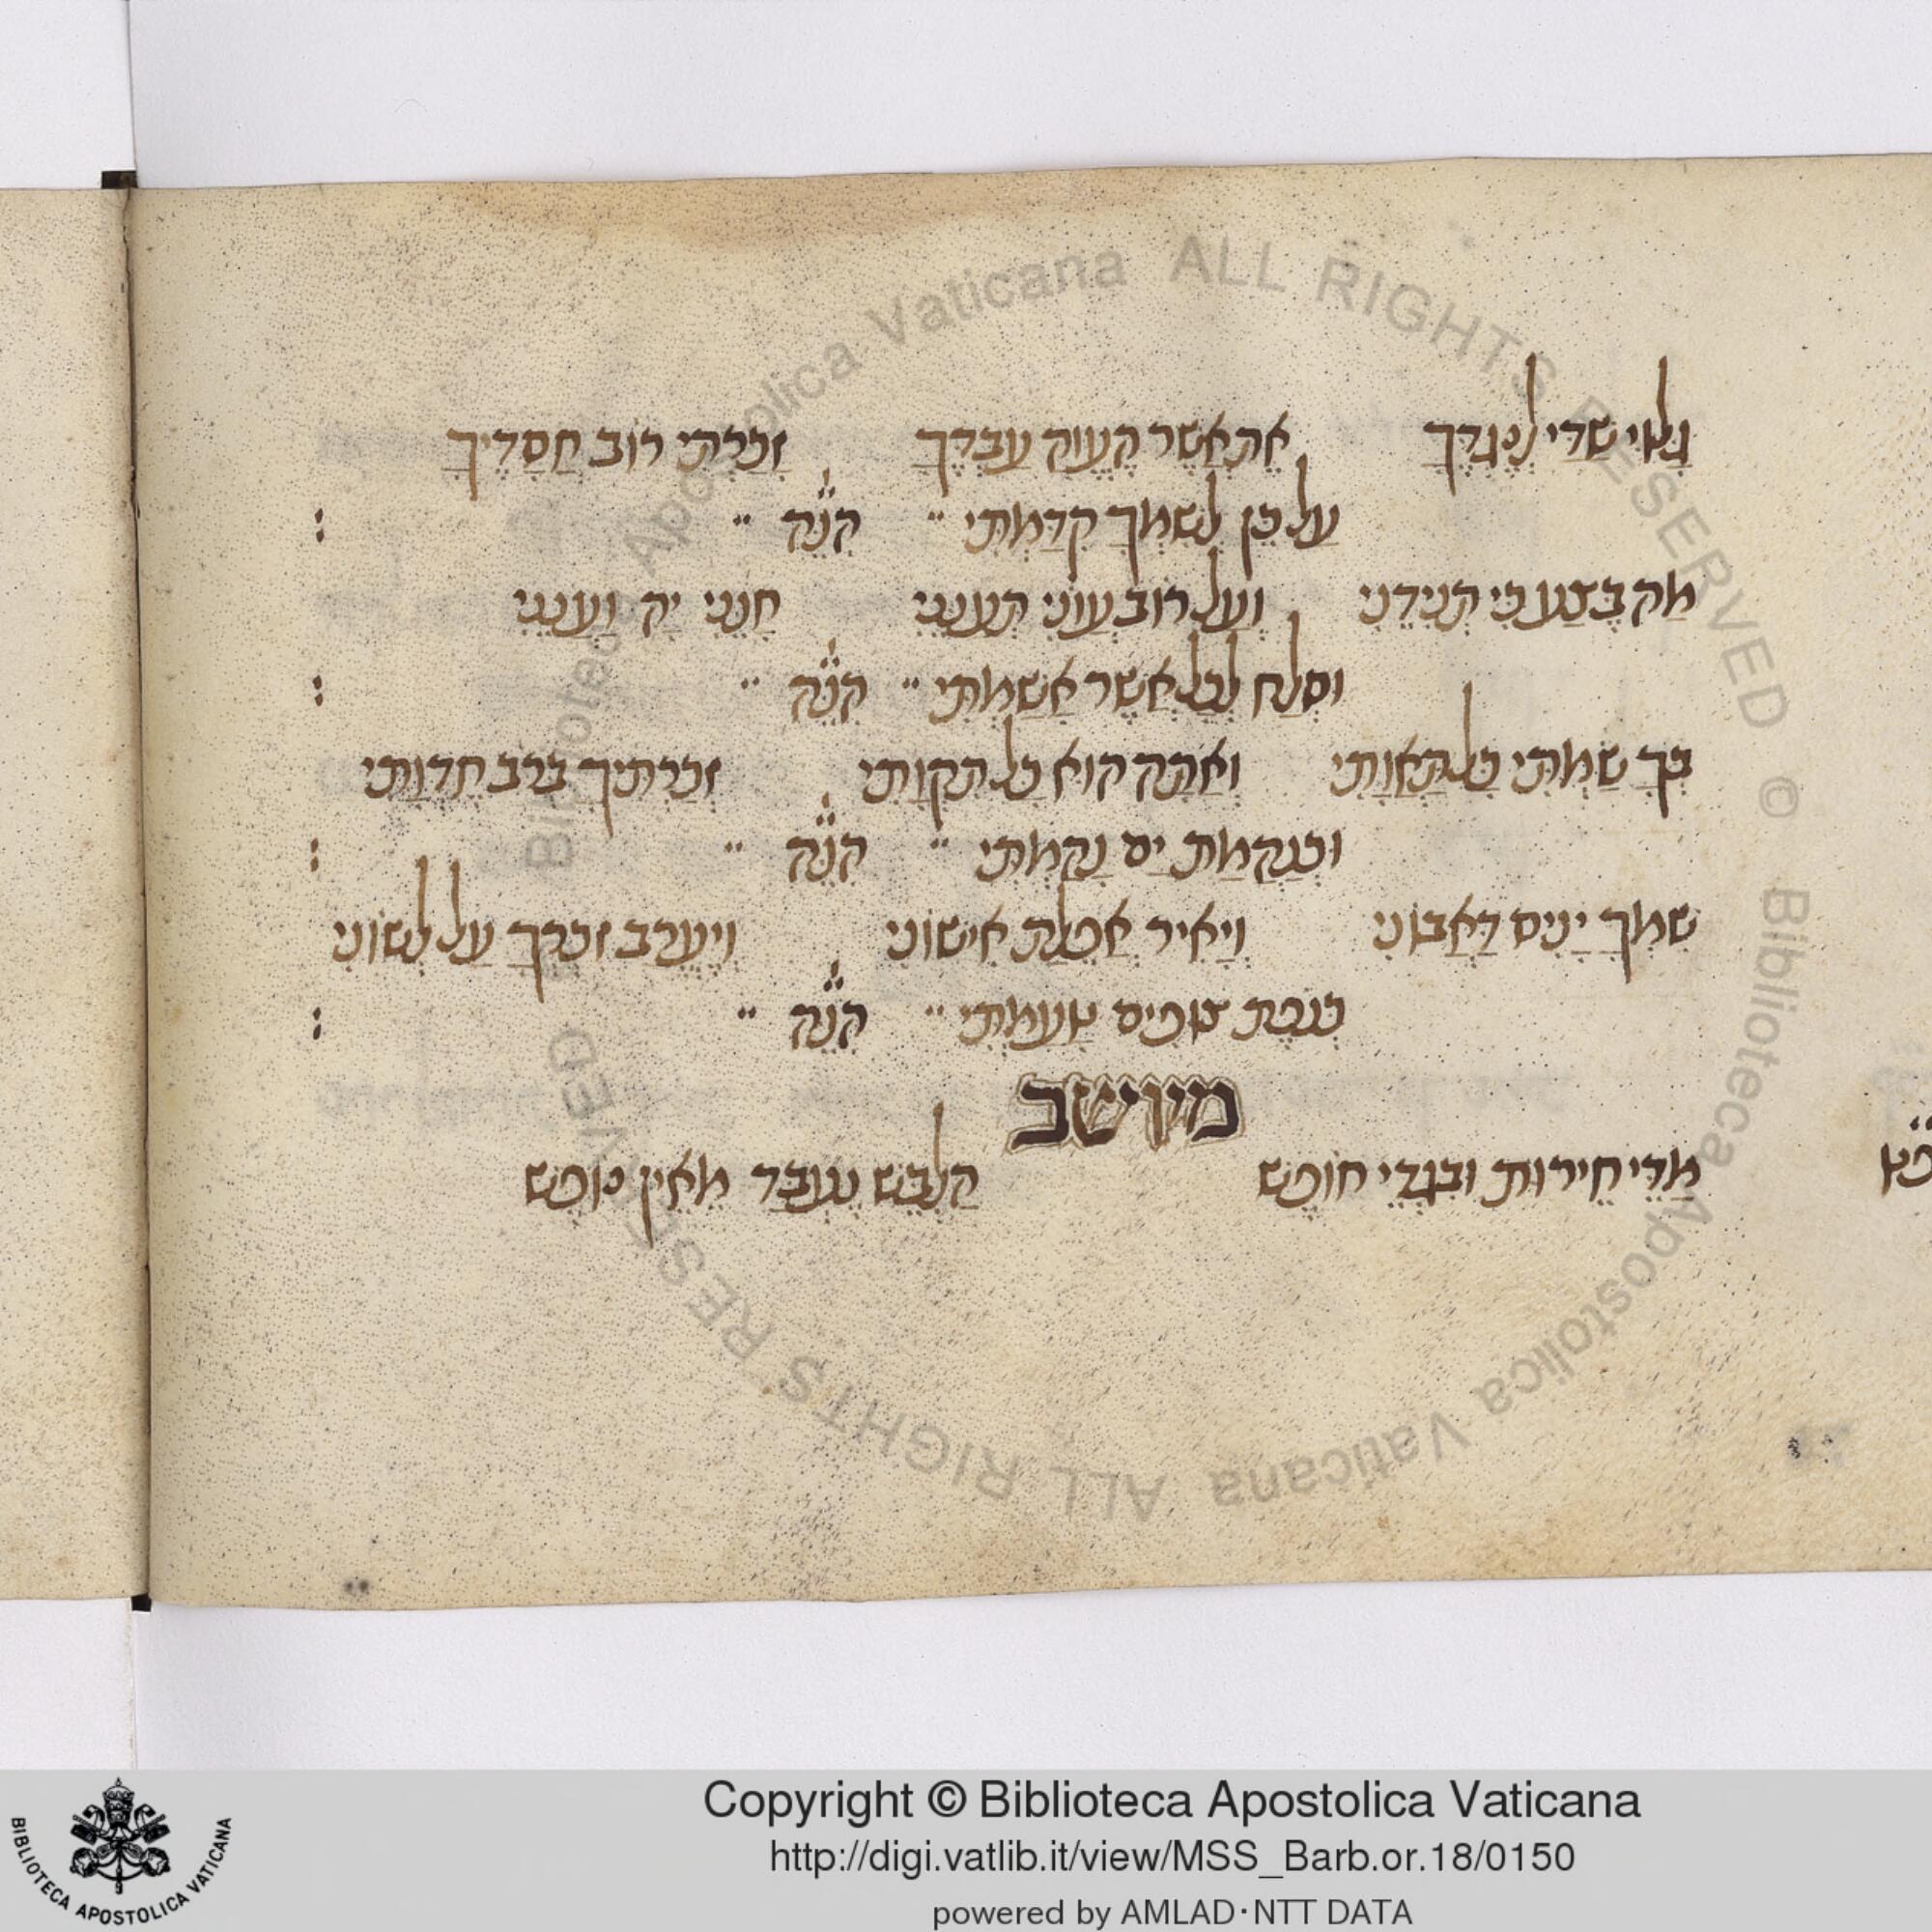 גָלוּי שַדַי לְנֶגְדֶךָ אֵת אֲשֶר הֶעֱוָה עַבְדֶךָ זָכַרְתִי רוֹב חֲסָדֶיךָ
עַל כֵן לְשִמְךָ קִדַמְתִי " הִנֵּה " :
מַה בֶצַע כִי תְנִידֵנִי וְעַל רוֹב עֲוֹנִי תְעַנֵנִי חָנֵנִי יָהּ וַעֲנֵנִי
וּסְלַח לְכָל אֲשֶר אָשַמְתִי " הִנֵּה " :
בְךָ שַמְתִי כָל תַאֲוָתִי וְאַתָה הוּא כָל תִקְוָתִי זְכַרְתִיךָ בְרֹב חֶדְוָתִי
וּכְנַהֲמַת יָם נָהַמְתִי " הִנֵּה " :
שִמְךָ יָנִיס דַאֲבוֹנִי וְיָאִיר אֲפֵלַת אִישוֹנִי וְיֶעֱרַב זִכְרְךָ עַל לְשוֹנִי
כְנֹפֶת צוּפִים טָעַמְתִי " הִנֵּה " :
מיושב
מַדֵי חֵירוּת וּבִגְדֵי חוֹפֶש הַלְבֵש נֶעֱבַד מֵאֵין נוֹפֶש